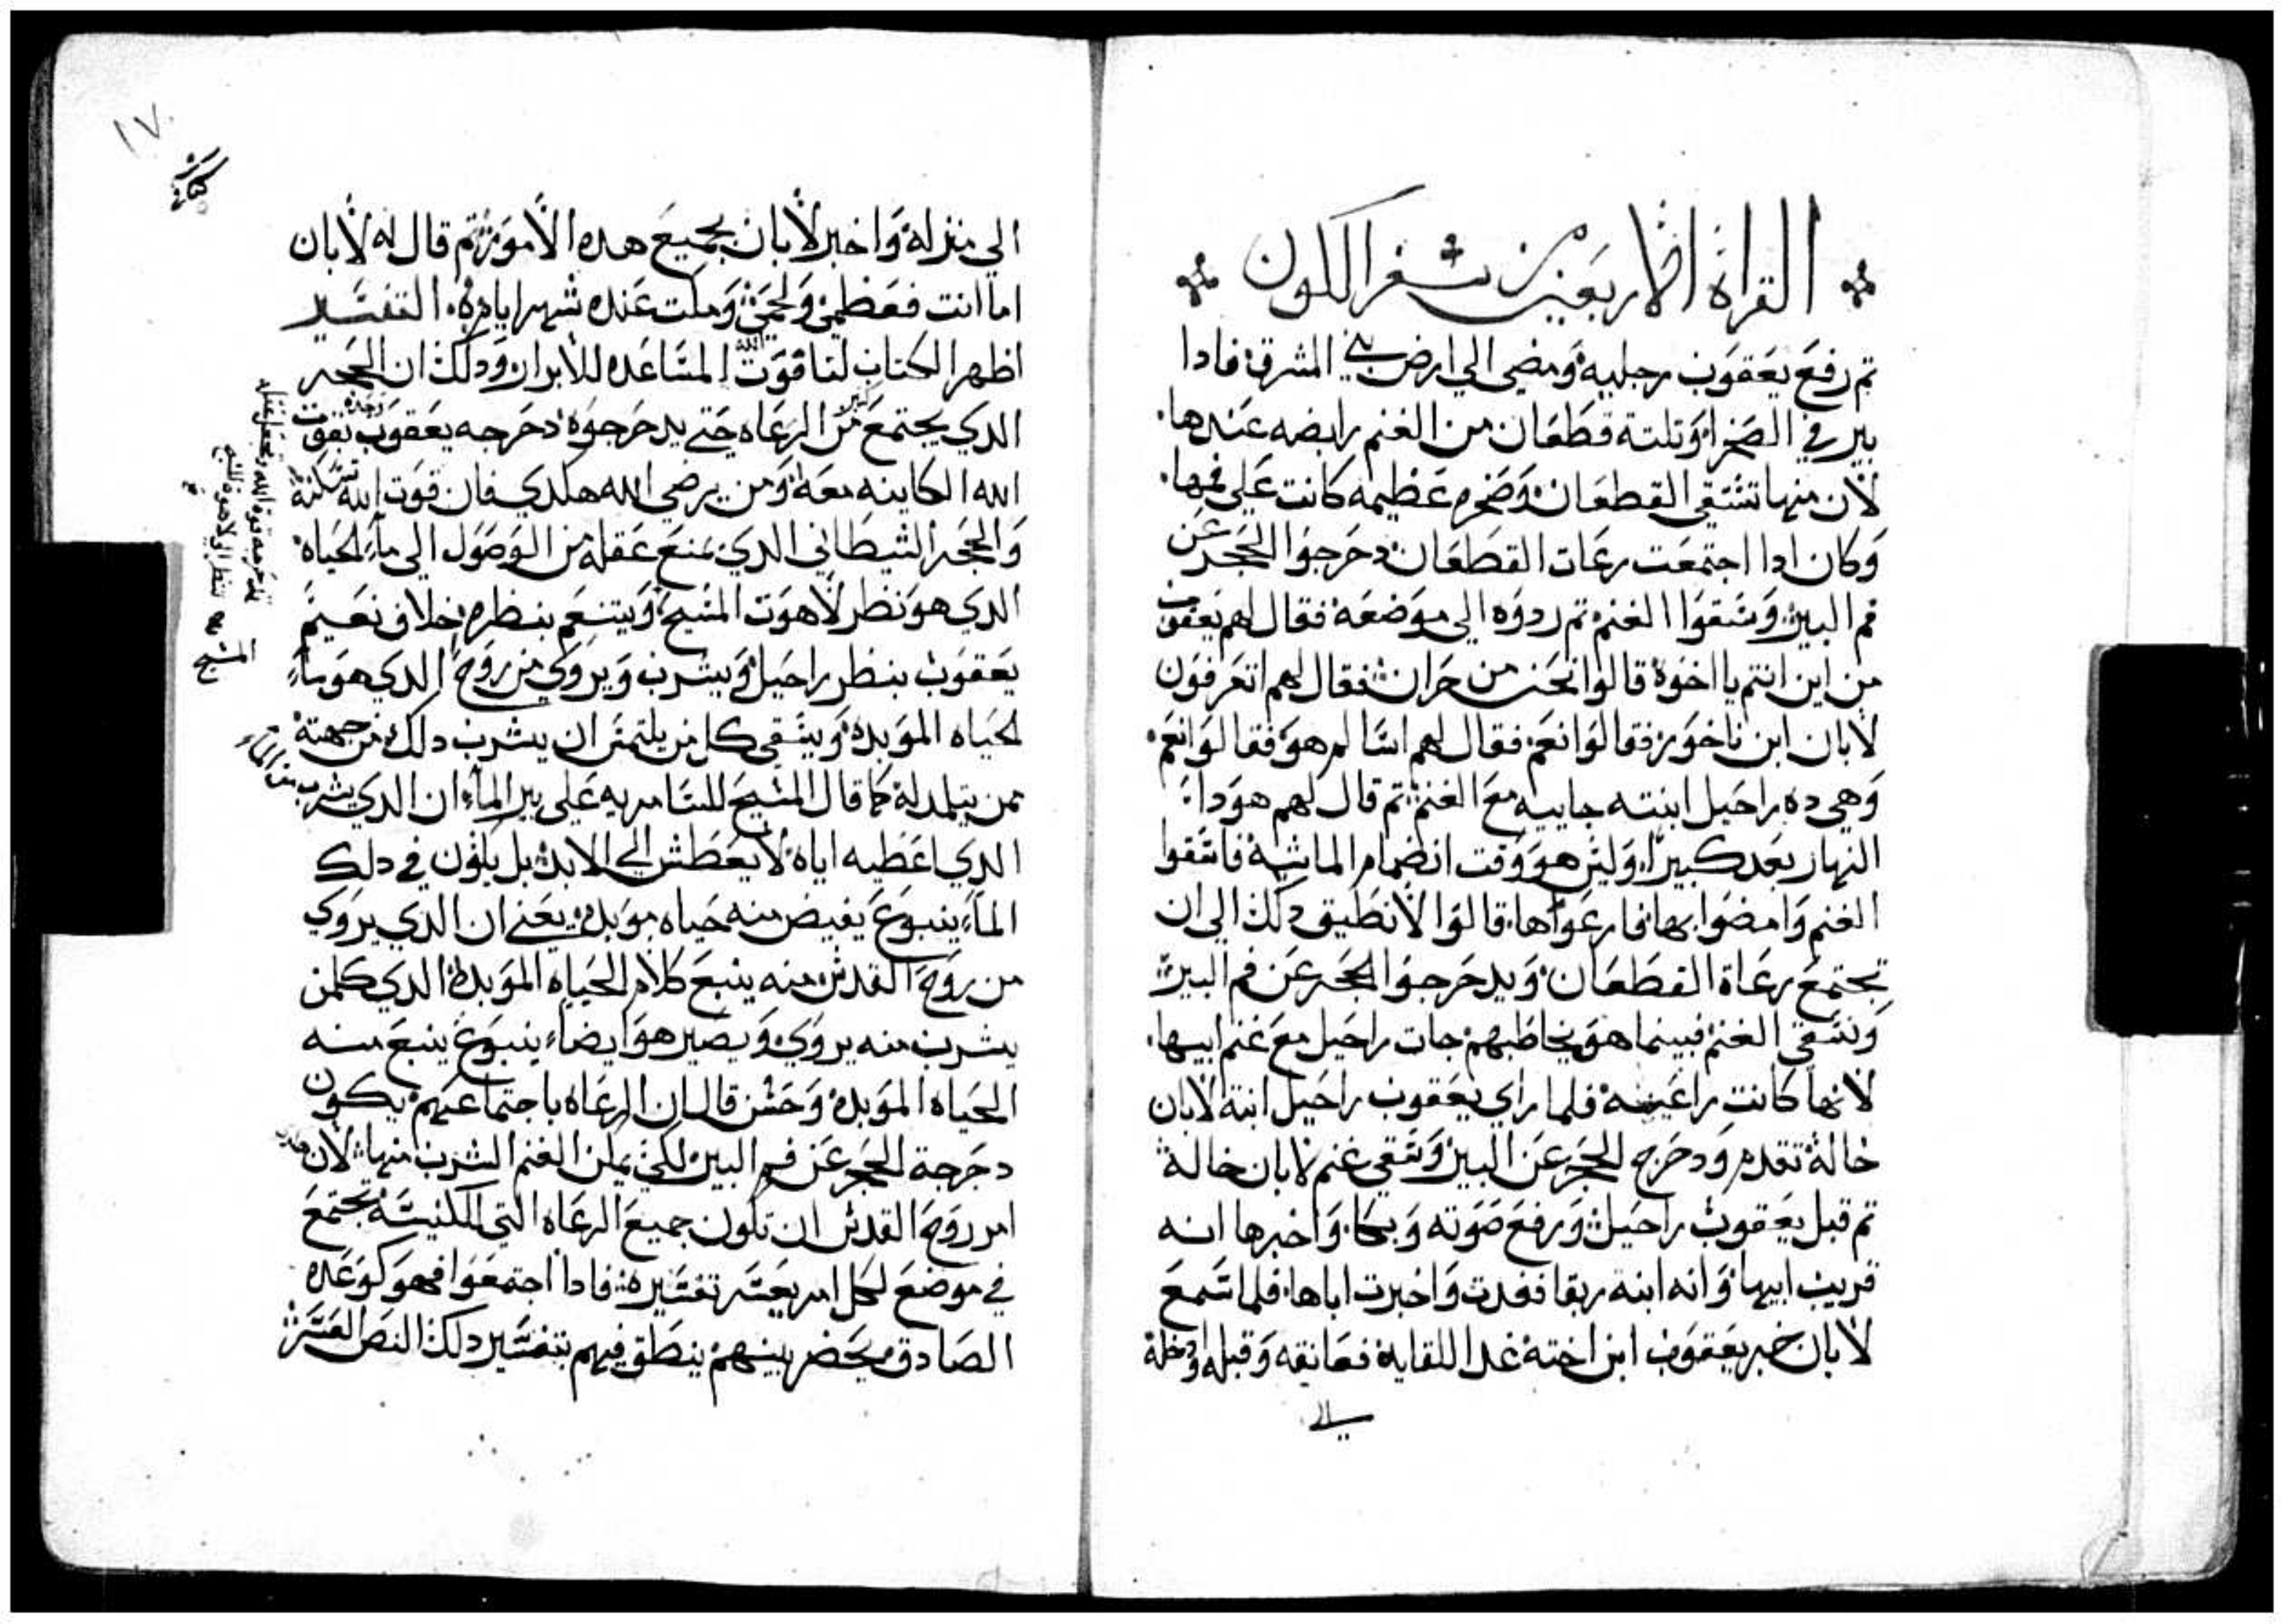 القراة الاربعين من سفر الكون
تم رفع يعقوب رجليه ومضي الي ارض بني المشرق فادا
بير في الصحرا وتلتة قطعان من الغنم رابضه عندها
لان منها تستقي القطعان وصخره عظيمه كانت علي فمها
وكان ادا اجتمعت رعات القطعان دحرجوا الحجر عن
فم البير وسقوا الغنم تم ردوه الي موضعه فقال لهم يعقوب
من اين انتم يا اخوة قالوا نحن من حران فقال لهم اتعرفون
لابان ابن ناخور فقالوا نعم فقال لهم اسالم هو فقالوا نعم
وهي ده راحيل ابنته جاييه مع الغنم تم قال لهم هودا
النهار بعد كبيرا وليس هو وقت انضمام الماشية فاسقوا
الغنم وامضوا بها فارعواها قالوا لا نطيق دلك الي ان
تجتمع رعاة القطعان ويدحرجوا الحجر عن فم البير
ونسقي الغنم فبينما هو يخاطبهم جات راحيل مع غنم ابيها
لانها كانت راعيه فلما راي يعقوب راحيل ابنة لابان
خالة تقدم ودحرج الحجر عن البير وسقي غنم لابان خالة
تم قبل يعقوب راحيل ورفع صوته وبكا واخبرها انه
قريب ابيها وانه ابنة ربقا فغدت واخبرت اباها فلما سمع
لابان خبر يعقوب ابن اخته غدا للقايه فعانقه وقبله وادخله
الي
١٧
الي منزله واخبر لابان بجميع هده الامور تم قال له لابان
اما انت فعظمي ولحمي ومكت عنده شهرا ايام التفسير
اظهر الكتاب لنا قوت الله المساعده للابرار ودلك ان الحجر
الدي يجتمع كتير من الرعاه حتي يدحرجوه دحرجه يعقوب وحده بقوت
الله الكاينه معه ومن يرضي الله هكدي فان قوت الله تسكنه
والحجر الشيطاني الدي يمنع عقله من الوصول الي ماء الحياه
الدي هو نظر لاهوت المسيح ويتنعم بنظره خلاف نعيم
يعقوب بنظر راحيل ويشرب ويروي من روح الدي هو ماء
الحياه الموبده ويسقي كل من يلتمس ان يشرب دلك من جهته
ممن يتلمد له كما قال المسيح للسامريه علي بير الماء ان الدي يشرب من الماء
الدي اعطيه اياه لا يعطش الي الابد بل يكون في دلك
الماء ينبوع يفيض منه حياه موبده يعني ان الدي يروي
من روح القدس منه ينبع كلام الحياه الموبده الدي كلمن
يشرب منه يروي ويصير هو ايضا ينبوع ينبع منه
الحياه الموبده وحسن قال ان الرعاه باجتماعهم يكون
دحرجة الحجر عن فم البير لكي يمكن الغنم الشرب منها لان
امر روح القدس ان تكون جميع الرعاه التي للكنيسة تجتمع
في موضع لكل امر يعسر تفسيره فادا اجتمعوا فهو كوعده
الصادق يحضر بينهم ينطق فيهم بتفسير دلك النص العسر
يدحرجه قوة الله وتجعل عقله
ينظر الي لاهوة المسيح
المسيح